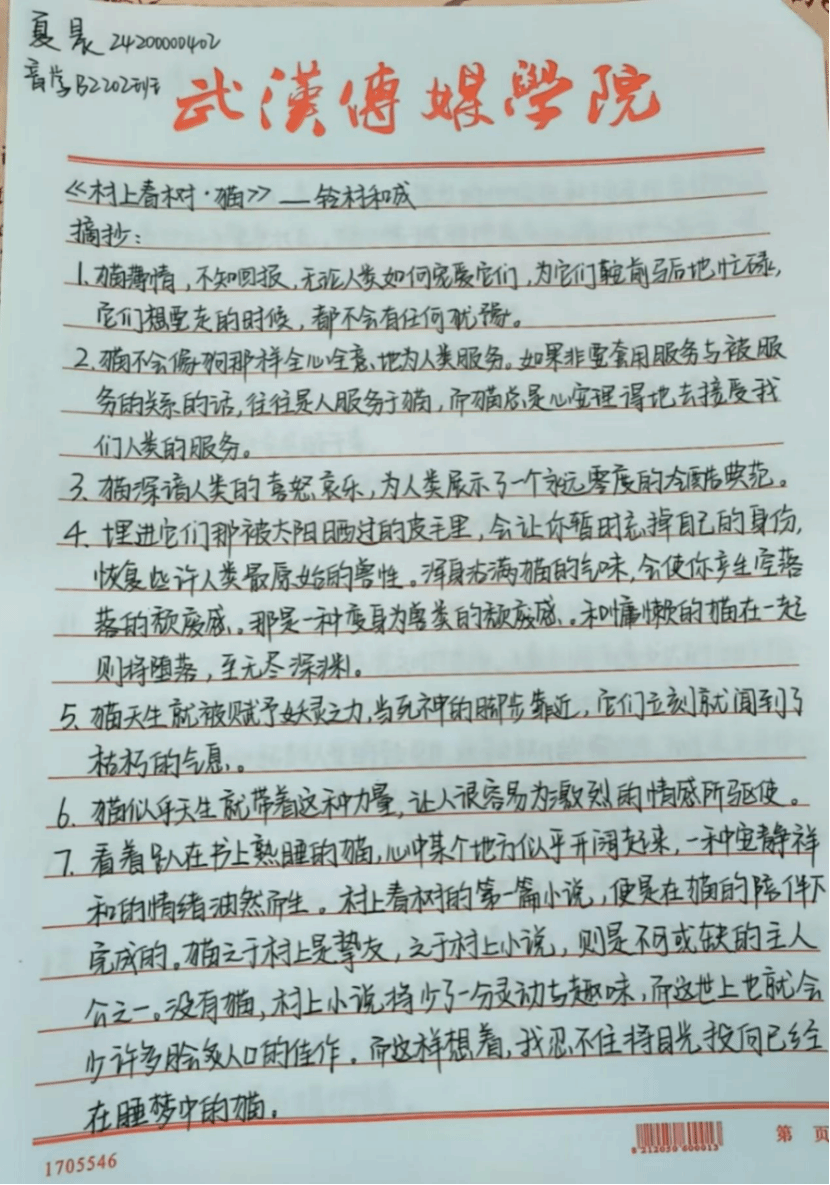 夏晟 24200000402
音学B2202班
武漢傳媒學院
《村上春树·猫》—铃村和成
摘抄：
1. 猫薄情，不知回报，无论人类如何宠爱它们，为它们鞍前马后地忙碌，
它们想要走的时候，都不会有任何犹豫。
2. 猫不会像狗那样全心全意地为人类服务。如果非要套用服务与被服
务的关系的话，往往是人服务于猫，而猫总是心安理得地去接受我
们人类的服务。
3. 猫深谙人类的喜怒哀乐，为人类展示了一个永远零度的冷酷典范。
4. 埋进它们那被太阳晒过的皮毛里，会让你暂时忘掉自己的身份，
恢复些许人类最原始的兽性。浑身沾满猫的气味，会使你产生空落
落的颓废感。那是一种变身为兽类的颓废感。和慵懒的猫在一起
则将堕落，至无尽深渊。
5. 猫天生就被赋予妖灵之力，当死神的脚步靠近，它们立刻就闻到了
枯朽的气息。
6. 猫似乎天生就带着这种力量，让人很容易为激烈的情感所驱使。
7. 看着趴在书上熟睡的猫，心中某个地方似乎开阔起来，一种安静祥
和的情绪油然而生。村上春树的第一篇小说，便是在猫的陪伴下
完成的。猫之于村上是挚友，之于村上小说，则是不可或缺的主人
公之一。没有猫，村上小说将少了一分灵动与趣味，而这世上也就会
少许多脍炙人口的佳作。而这样想着，我忍不住将目光投向已经
在睡梦中的猫。
1705546
第 页